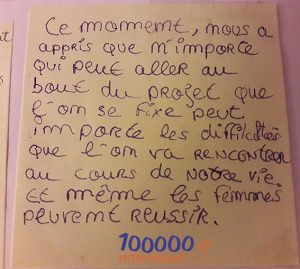 Ce moment, nous a
appris que n'importe
qui peut aller au
bout du projet que
l'on se fixe peut
importe les difficultés
que l'on va RENCONTRER
au cours de NOTRE vie.
Et même les femmes
peuvent REUSSIR.
100000